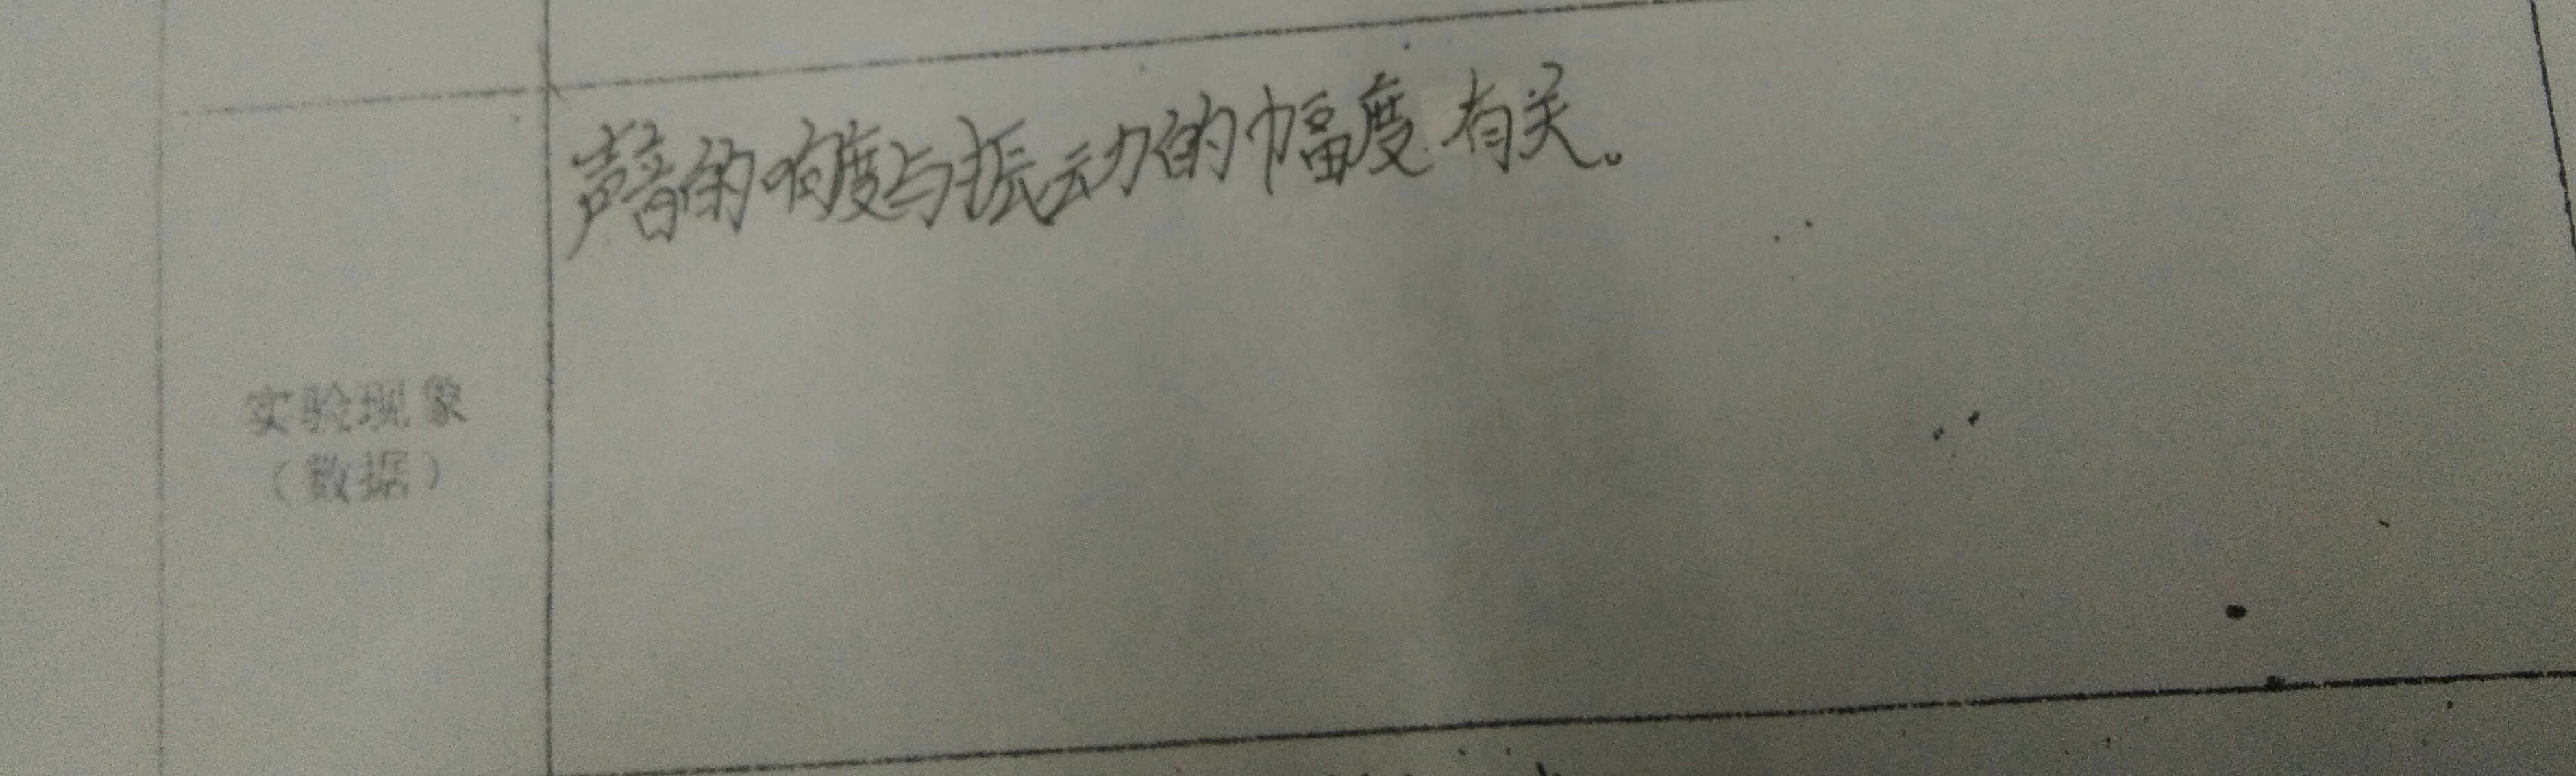 声音的响度与振动的幅度有关。
实验现象
（数据）